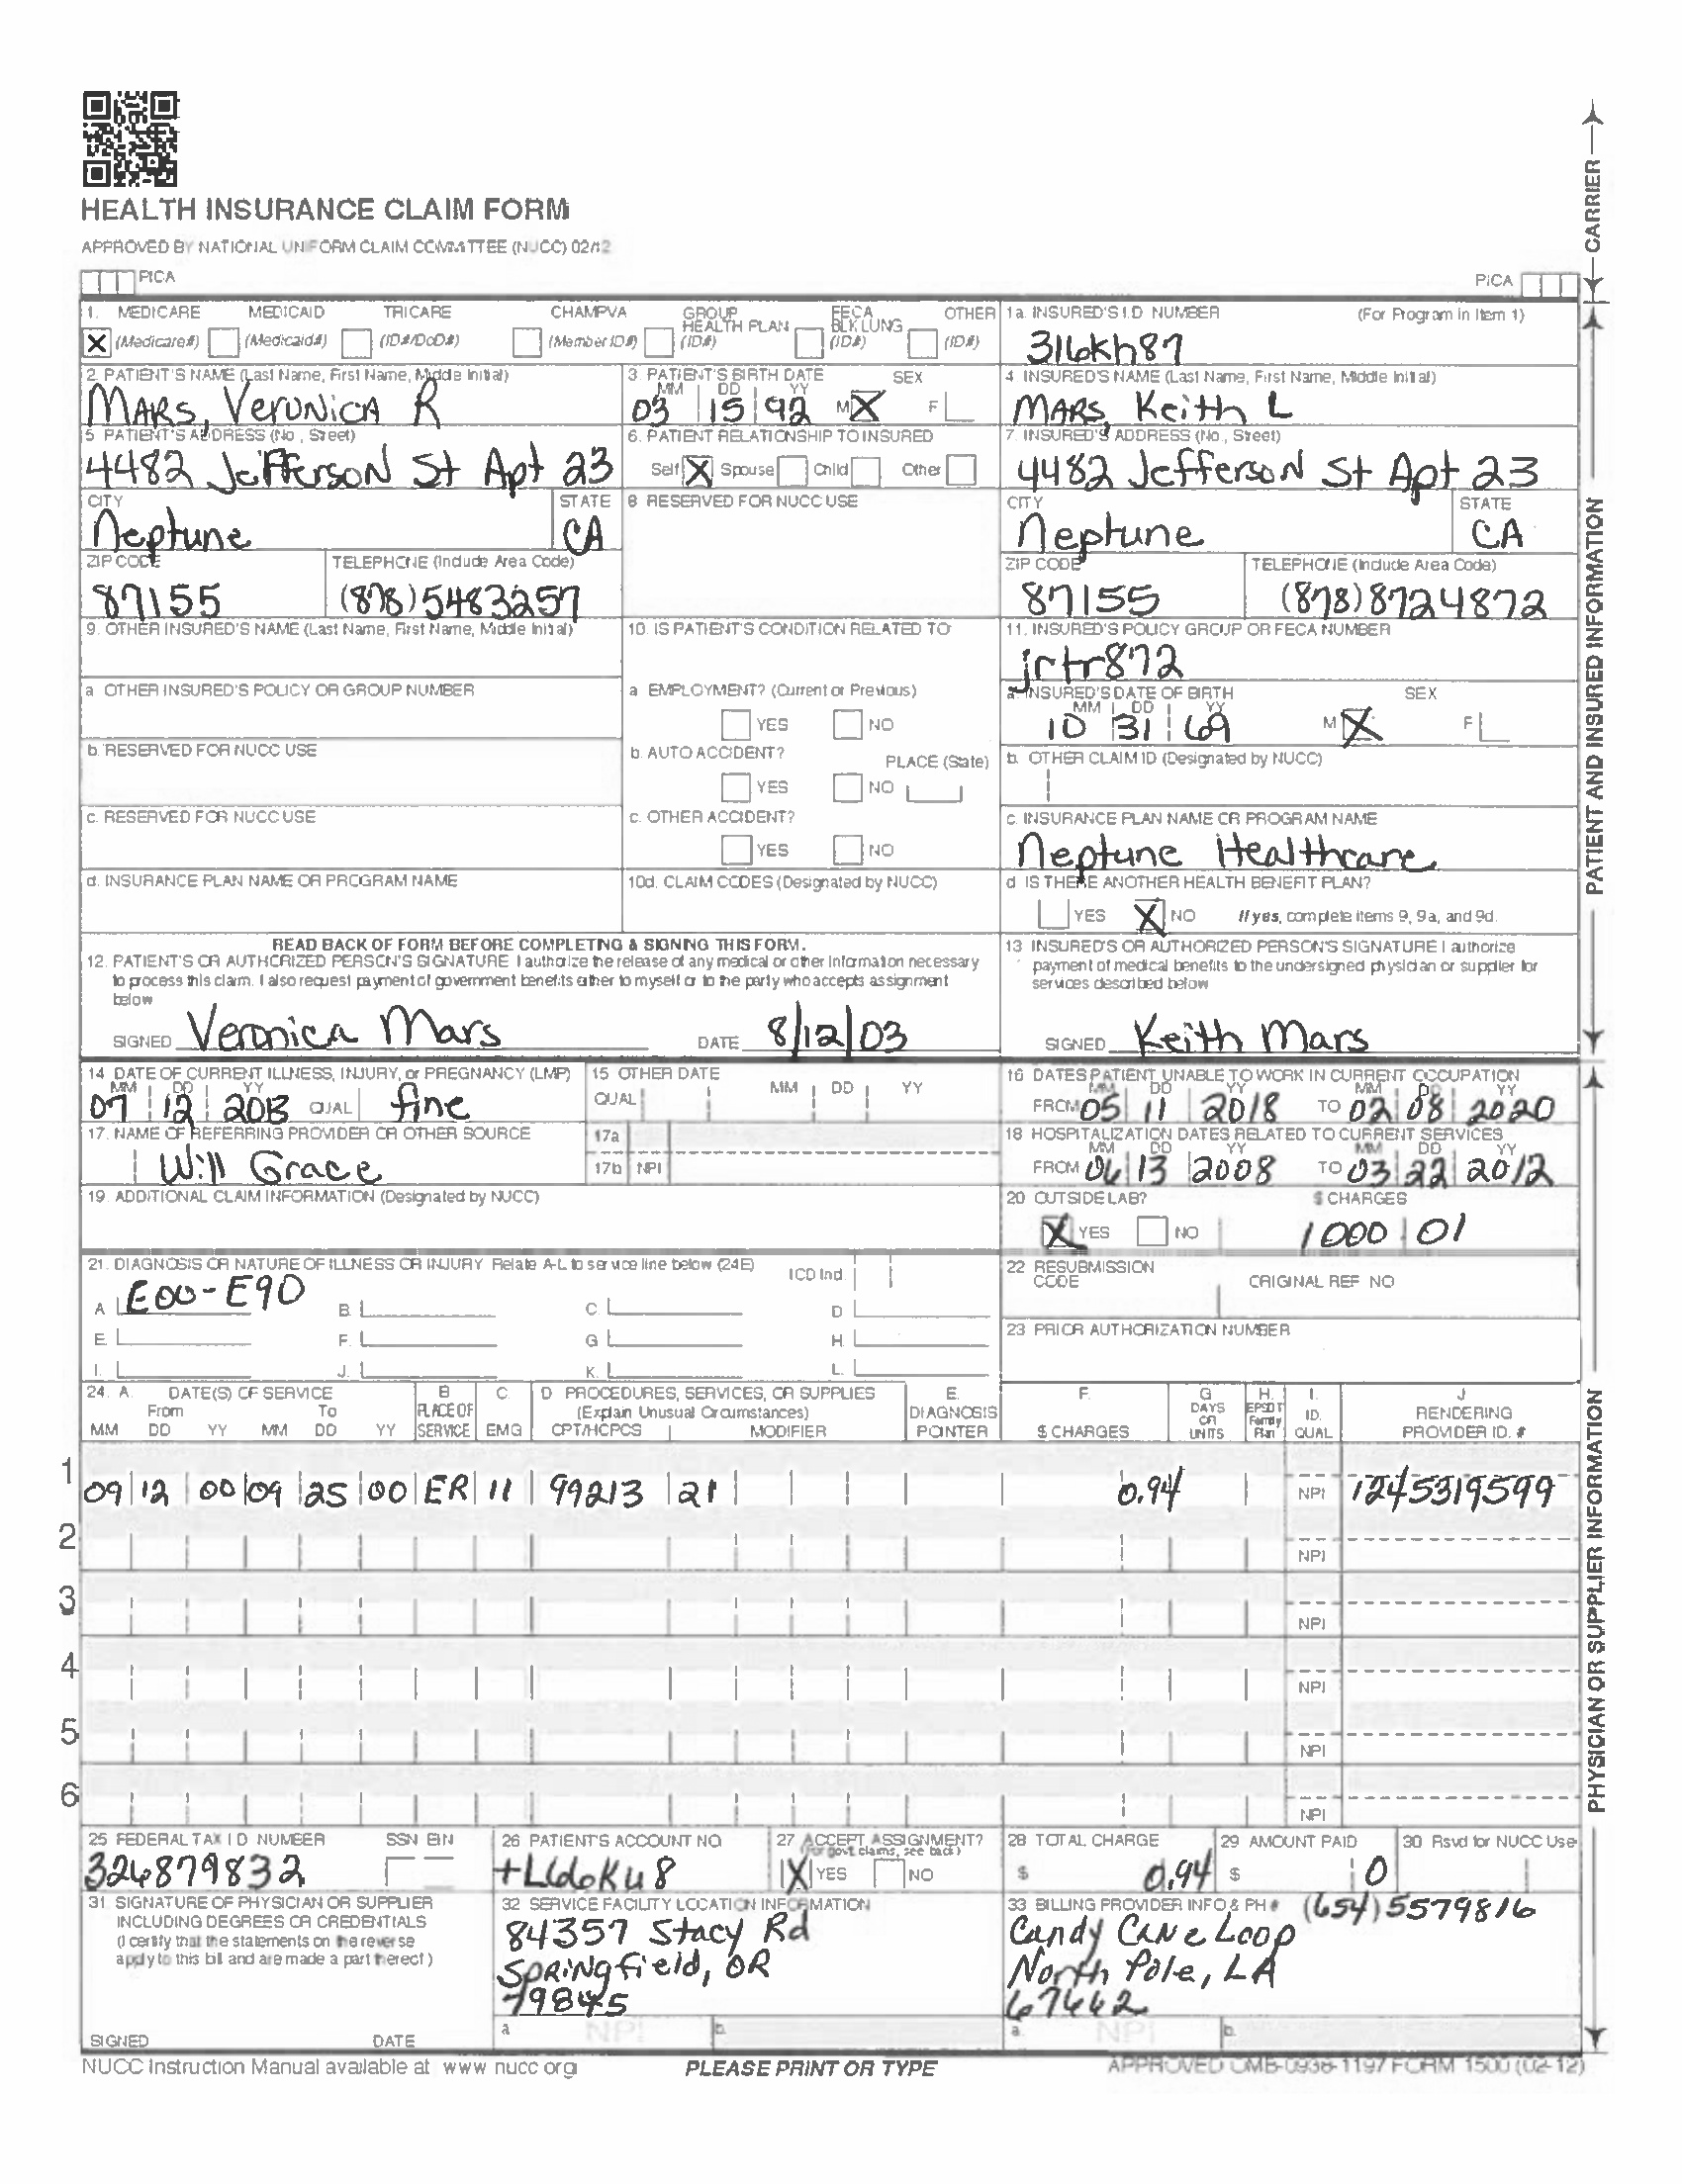 HEALTH INSURANCE CLAIM FORM
APPROVED BY NATIONAL UNIFORM CLAIM COMMITTEE (NUCC) 02/12
PICA
PICA
CARRIER
1. MEDICARE MEDICAID TRICARE CHAMPVA GROUP HEALTH PLAN FECA BLK LUNG OTHER
X (Medicare#) (Medicaid#) (ID#/DoD#) (Member ID#) (ID#) (ID#) (ID#)
1a. INSURED'S I.D. NUMBER (For Program in Item 1)
316kh87
2. PATIENT'S NAME (Last Name, First Name, Middle Initial)
MARS, VerONICA R
3. PATIENT'S BIRTH DATE SEX
MM DD YY
03 15 92 M X F
4. INSURED'S NAME (Last Name, First Name, Middle Initial)
MARS, Keith L
5. PATIENT'S ADDRESS (No., Street)
4482 Jefferson St Apt 23
6. PATIENT RELATIONSHIP TO INSURED
Self X Spouse Child Other
7. INSURED'S ADDRESS (No., Street)
4482 Jefferson St Apt 23
CITY STATE
Neptune CA
8. RESERVED FOR NUCC USE
CITY STATE
Neptune CA
ZIP CODE TELEPHONE (Include Area Code)
87155 (878)5483257
ZIP CODE TELEPHONE (Include Area Code)
87155 (878)8724872
9. OTHER INSURED'S NAME (Last Name, First Name, Middle Initial)
10. IS PATIENT'S CONDITION RELATED TO
11. INSURED'S POLICY GROUP OR FECA NUMBER
jrtr872
a. OTHER INSURED'S POLICY OR GROUP NUMBER
a. EMPLOYMENT? (Current or Previous)
YES NO
a. INSURED'S DATE OF BIRTH SEX
MM DD YY
10 31 69 M X F
b. RESERVED FOR NUCC USE
b. AUTO ACCIDENT? PLACE (State)
YES NO
b. OTHER CLAIM ID (Designated by NUCC)
c. RESERVED FOR NUCC USE
c. OTHER ACCIDENT?
YES NO
c. INSURANCE PLAN NAME OR PROGRAM NAME
Neptune Healthcare
d. INSURANCE PLAN NAME OR PROGRAM NAME
10d. CLAIM CODES (Designated by NUCC)
d. IS THERE ANOTHER HEALTH BENEFIT PLAN?
YES X NO If yes, complete items 9, 9a, and 9d.
PATIENT AND INSURED INFORMATION
READ BACK OF FORM BEFORE COMPLETING & SIGNING THIS FORM.
12. PATIENT'S OR AUTHORIZED PERSON'S SIGNATURE I authorize the release of any medical or other information necessary
to process this claim. I also request payment of government benefits either to myself or to the party who accepts assignment
below
SIGNED Veronica Mars DATE 8/12/03
13. INSURED'S OR AUTHORIZED PERSON'S SIGNATURE I authorize
payment of medical benefits to the undersigned physician or supplier for
services described below
SIGNED Keith Mars
14. DATE OF CURRENT ILLNESS, INJURY, or PREGNANCY (LMP)
MM DD YY
07 12 2013 QUAL fine
15. OTHER DATE
QUAL MM DD YY
16. DATES PATIENT UNABLE TO WORK IN CURRENT OCCUPATION
MM DD YY MM DD YY
FROM 05 11 2018 TO 02 08 2020
17. NAME OF REFERRING PROVIDER OR OTHER SOURCE
Will Grace
17a
17b NPI
18. HOSPITALIZATION DATES RELATED TO CURRENT SERVICES
MM DD YY MM DD YY
FROM 06 13 2008 TO 03 22 2012
19. ADDITIONAL CLAIM INFORMATION (Designated by NUCC)
20. OUTSIDE LAB? $ CHARGES
X YES NO 1000 01
21. DIAGNOSIS OR NATURE OF ILLNESS OR INJURY Relate A-L to service line below (24E) ICD Ind.
A. E00-E90 B. C. D.
E. F. G. H.
I. J. K. L.
22. RESUBMISSION CODE ORIGINAL REF. NO
23. PRIOR AUTHORIZATION NUMBER
24. A. DATE(S) OF SERVICE B. C. D. PROCEDURES, SERVICES, OR SUPPLIES E. F. G. H. I. J.
From To PLACE OF (Explain Unusual Circumstances) DIAGNOSIS DAYS OR UNITS EPSDT Family Plan ID. RENDERING
MM DD YY MM DD YY SERVICE EMG CPT/HCPCS MODIFIER POINTER $ CHARGES QUAL. PROVIDER ID. #
1 09 12 00 09 25 00 ER 11 99213 21 0.94 NPI 1245319599
2 NPI
3 NPI
4 NPI
5 NPI
6 NPI
PHYSICIAN OR SUPPLIER INFORMATION
25. FEDERAL TAX I.D. NUMBER SSN EIN
326879832
26. PATIENT'S ACCOUNT NO.
27. ACCEPT ASSIGNMENT?
(For govt. claims, see back)
X YES NO
28. TOTAL CHARGE
$ 0.94
29. AMOUNT PAID
$ 0
30. Rsvd for NUCC Use
31. SIGNATURE OF PHYSICIAN OR SUPPLIER
INCLUDING DEGREES OR CREDENTIALS
(I certify that the statements on the reverse
apply to this bill and are made a part thereof.)
SIGNED DATE
32. SERVICE FACILITY LOCATION INFORMATION
84357 Stacy Rd
Springfield, OR
79845
a. NPI b.
33. BILLING PROVIDER INFO & PH # (654)5579816
Candy Cane Loop
North Pole, LA
67662
a. NPI b.
NUCC Instruction Manual available at www.nucc.org
PLEASE PRINT OR TYPE
APPROVED OMB-0938-1197 FORM 1500 (02-12)